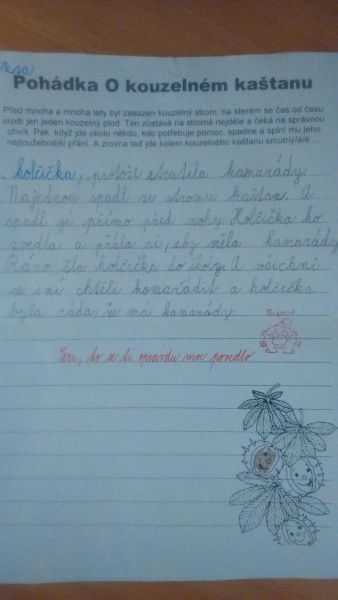 Tera
Pohádka O kouzelném kaštanu
Před mnoha a mnoha lety byl zasazen kouzelný strom, na kterém se čas od času
urodí jen jeden kouzelný plod. Ten zůstává na stromě nejdéle a čeká na správnou
chvíli. Pak, když jde okolo někdo, kdo potřebuje pomoc, spadne a splní mu jeho
nejtoužebnější přání. A zrovna teď jde kolem kouzelného kaštanu smutný/á/é
holčička, protože ztratila kamarády.
Najednou spadl ze stromu kaštan. A
spadl jí přímo před nohy. Holčička ho
zvedla a přála si, aby měla kamarády.
Ráno šla holčička do školy. A všichni
se s ní chtěli kamarádit a holčička
byla ráda, že má kamarády.
Teri, to se ti opravdu moc povedlo.